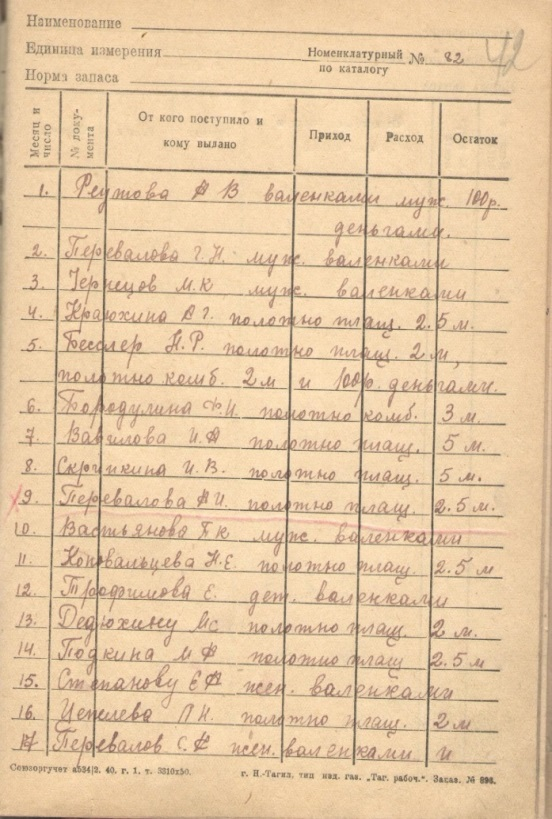 42
Наименование
Единица измерения Номенклатурный № 82
по каталогу
Норма запаса
Месяц и число № документа От кого поступило и кому вылано Приход Расход Остаток
1. Реутова А В валенками муж. 100р.
деньгами.
2. Перевалова Г.Н. муж. валенками
3. Чернецов М.К муж. валенками
4. Краюхина А Г. полотно плащ. 2.5 м.
5. Бесслер Н.Р. полотно плащ. 2 м,
полотно комб. 2 м и 100р. деньгами.
6. Бородулина Ф.И. полотно комб. 3 м.
7. Вавилова И.А полотно плащ. 5 м.
8. Скрипкина И.В. полотно плащ. 5 м.
9. Перевалова А И. полотно плащ. 2.5 м.
10. Вастьянова П К муж. валенками
11. Коновальцева Н.Е. полотно плащ. 2.5 м
12. Трофимова Е. дет. валенками
13. Дедюхину М с полотно плащ. 2 м.
14. Подкина М Ф полотно плащ 2.5 м
15. Степанову Е Ф жен. валенками
16. П.Н. полотно плащ. 2 м
17 Перевалов С. жен. валенками и
Союзоргучет а534/2. 40. г. 1. т. 3310х50. г. Н.-Тагил, тип изд. газ. „Таг. рабоч.“. Заказ. № 893.